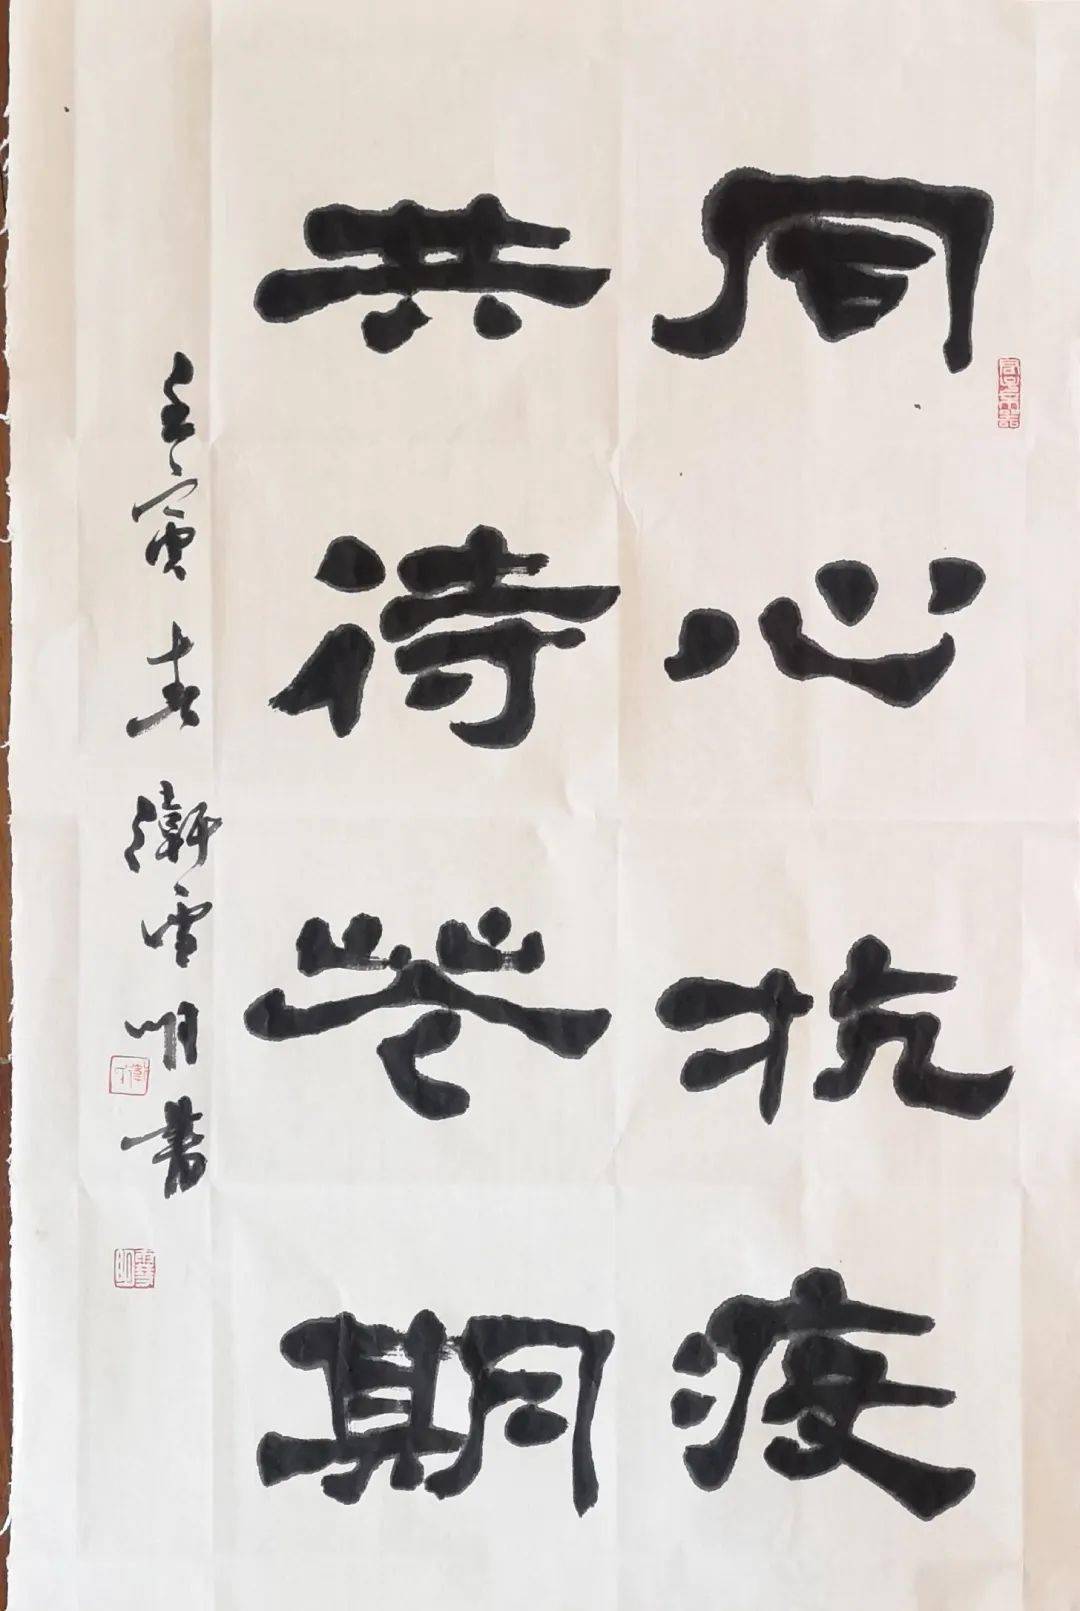 同心抗疫
共待花期
壬寅春卫雪明书